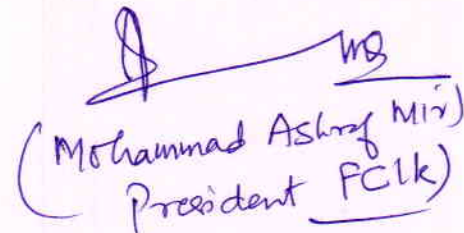 (Mohammad Ashraf Mir)
President FCIK)